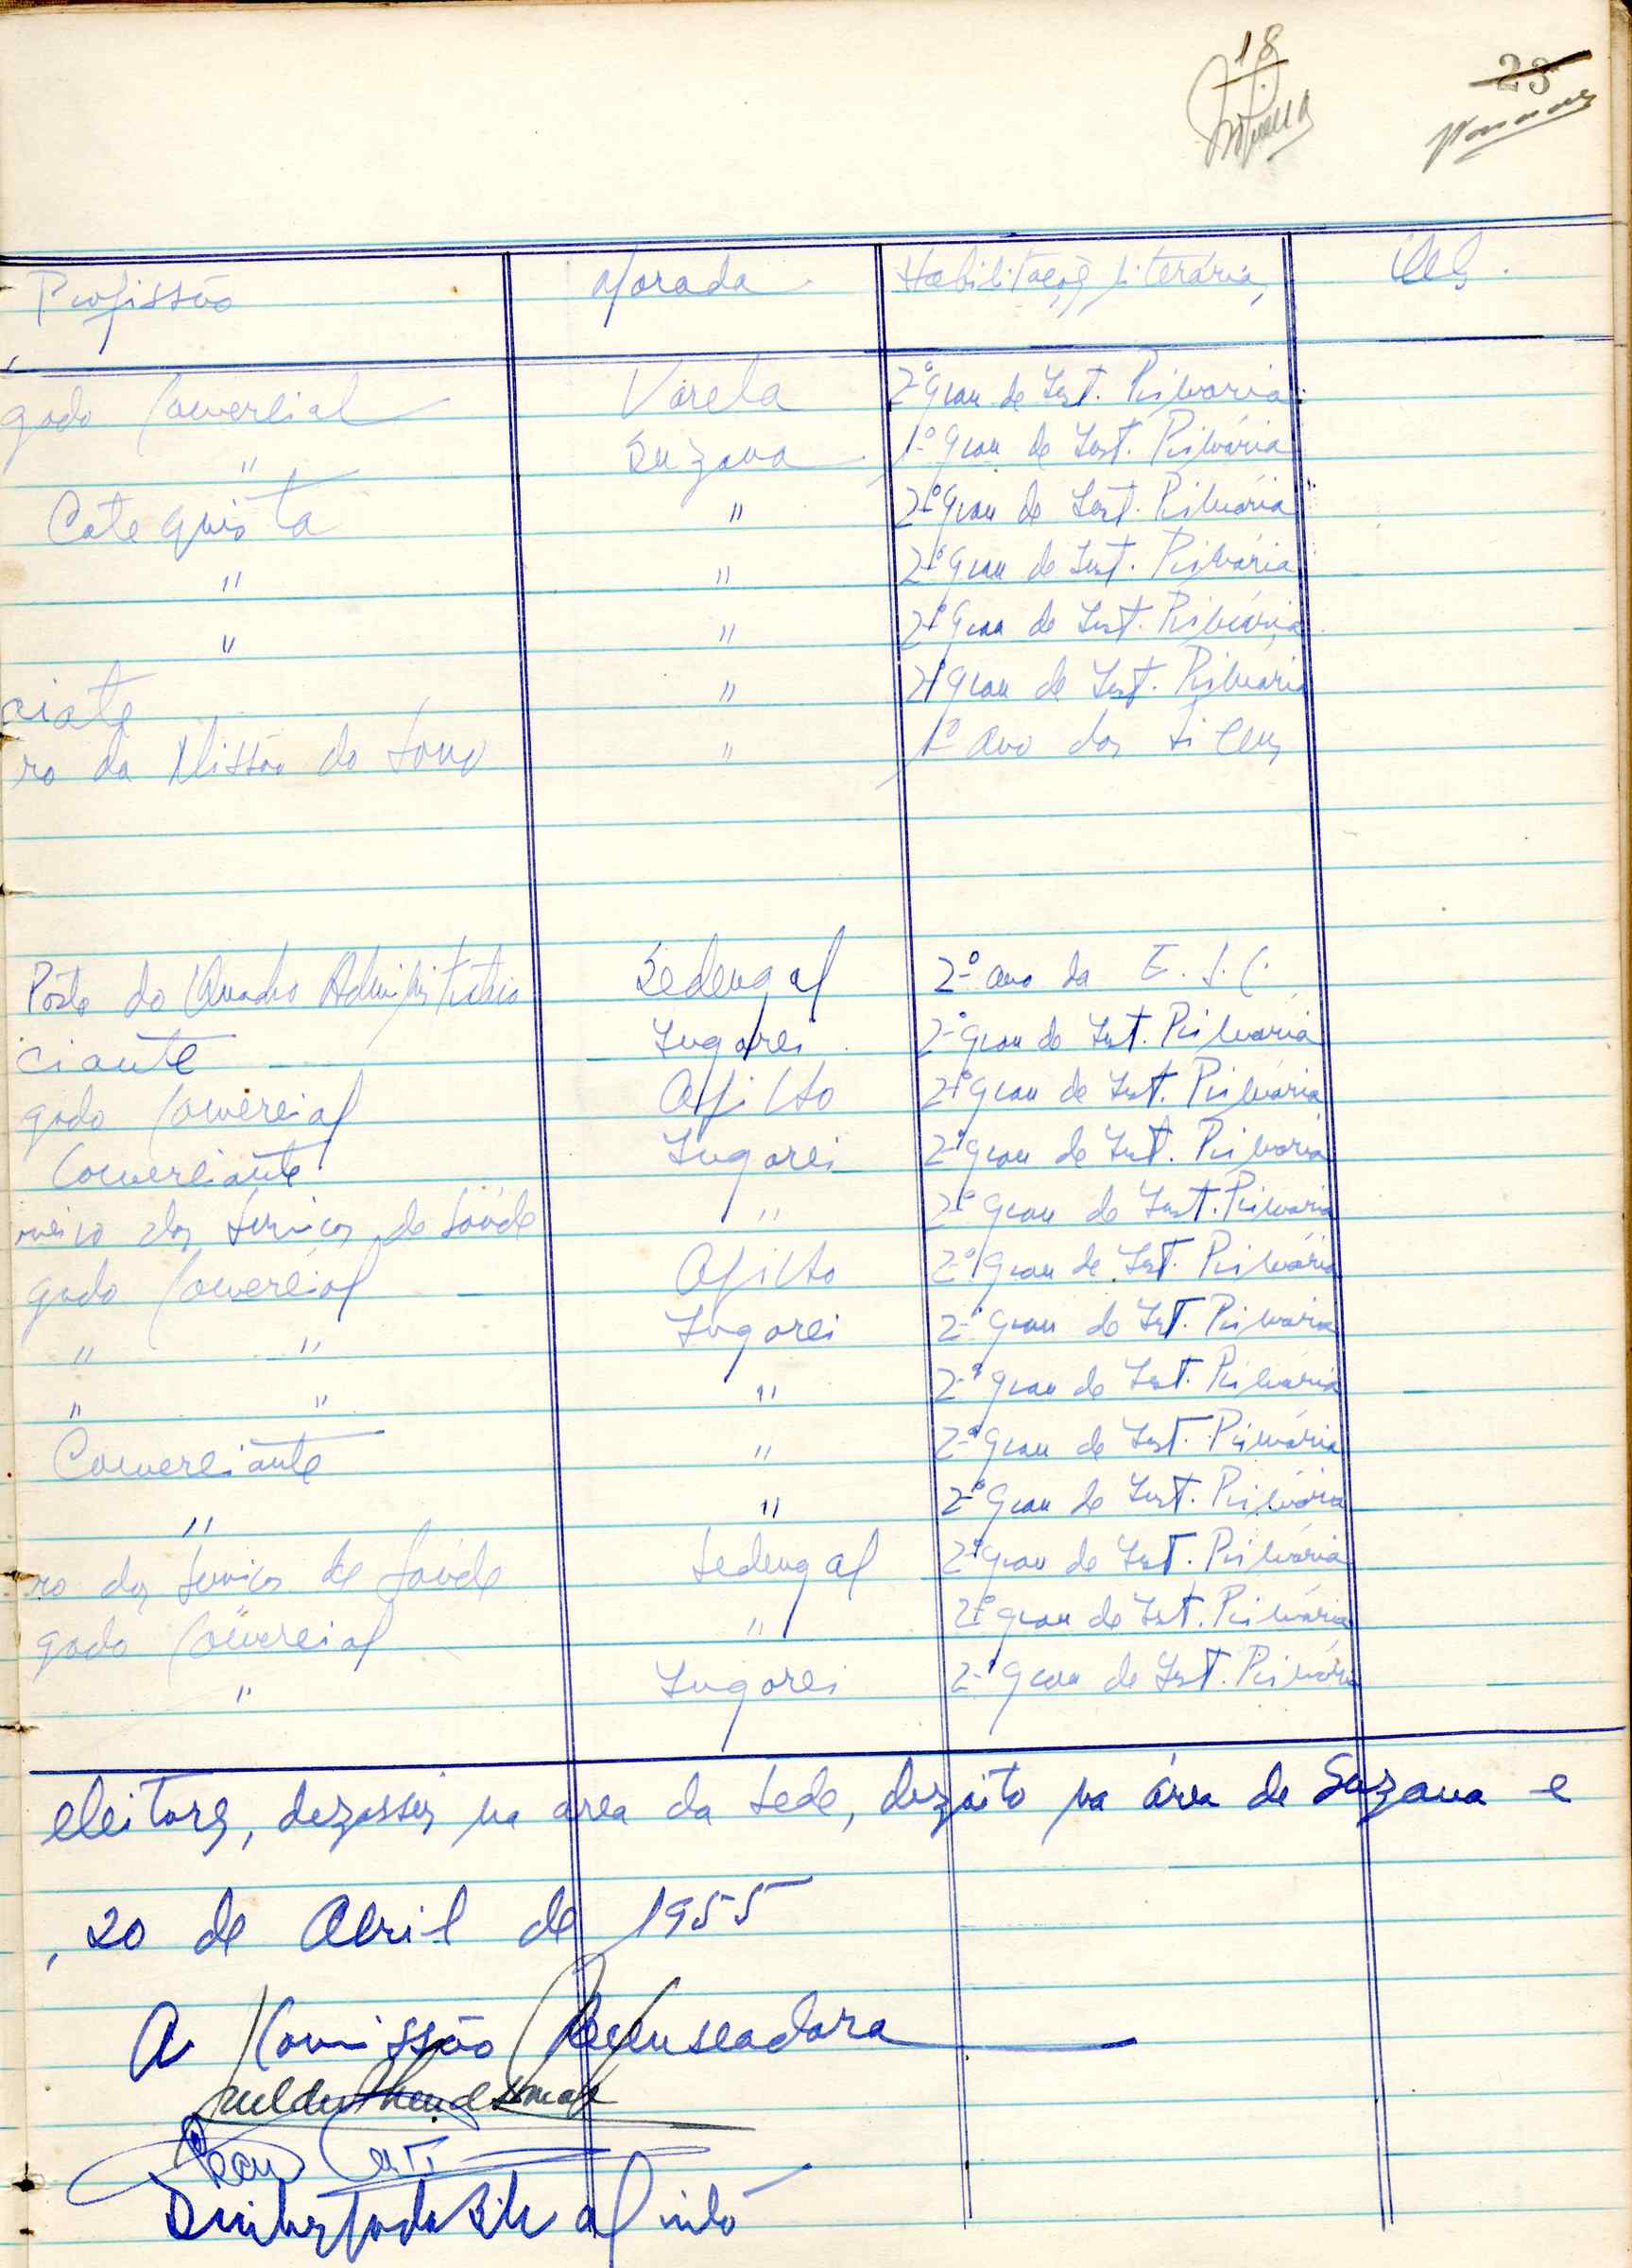 18
23
Profissão Morada Habilitações literárias Obs.
gado Comercial Varela 2º grau de Inst. Primaria
" Suzana 1º grau de Inst. Primária
Catequista " 2º grau de Inst. Primária "
" " 2º grau de Inst. Primária
" " 2º grau de Inst. Primária
ciate " 2º grau de Inst. Primária
ro da Missão do Sono " 1º ano dos Liceus
Posto do Quadro Administrativo Sedengal 2º ano da E. S. C.
ciante Ingorei 2º grau de Inst. Primária
gado Comercial 2º grau de Inst. Primária
Comerciante Ingorei 2º grau de Inst. Primária
meiro dos Serviços de Saúde " 2º grau de Inst. Primária
gado Comercial 2º grau de Inst. Primária
" " Ingorei 2º grau de Inst. Primária
" " " 2º grau de Inst. Primária
Comerciante " 2º grau de Inst. Primária
" " 2º grau de Inst. Primária
ro dos Serviços de Saúde Sedengal 2º grau de Inst. Primária
gado Comercial " 2º grau de Inst. Primária
" Ingorei 2º grau de Inst. Primária
eleitores, dezasseis na area da Sede, dezoito na área de Suzana e
, 20 de Abril de 1955
A Comissão Recenseadora